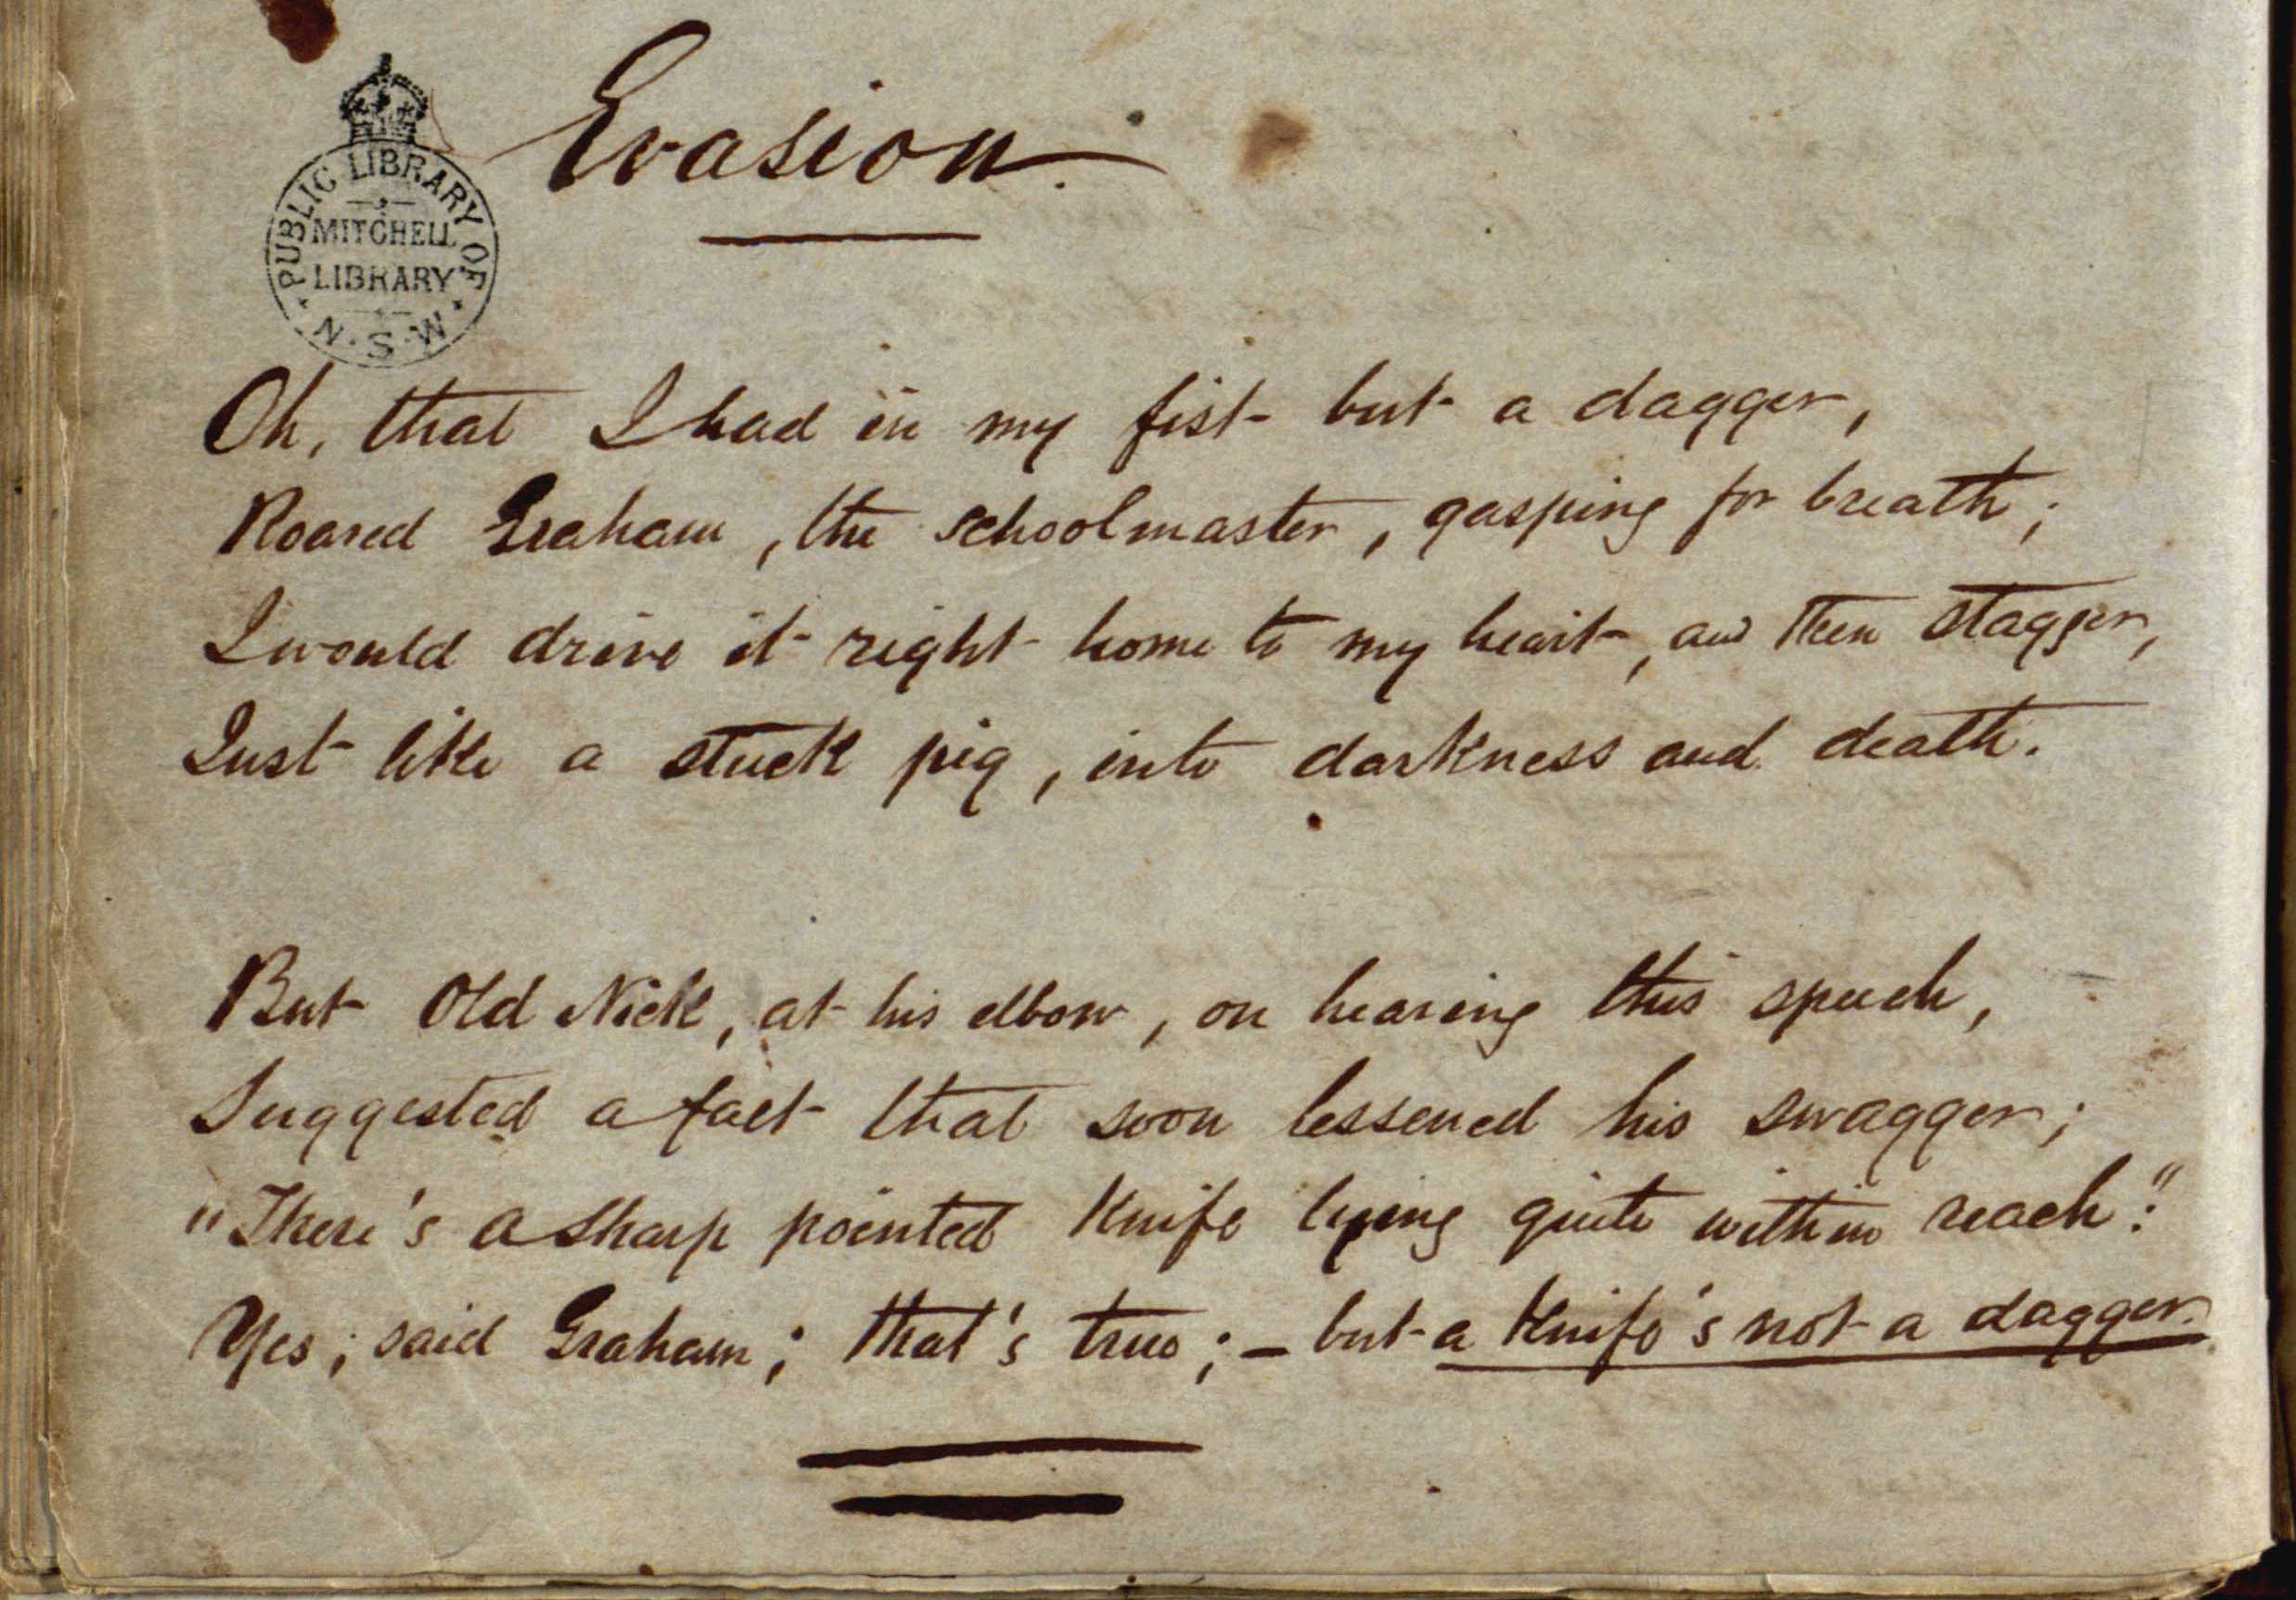 Evasion.
PUBLIC LIBRARY OF N.S.W.
MITCHELL
LIBRARY
Oh, that I had in my fist but a dagger,
Roared Graham, the schoolmaster, gasping for breath;
I would drive it right home to my heart, and then stagger,
Just like a stuck pig, into darkness and death.
But Old Nick, at his elbow, on hearing this speech,
Suggested a fact that soon lessened his swagger;
"There's a sharp pointed Knife lying quite within reach:"
Yes; said Graham; that's true; – but a Knife's not a dagger.